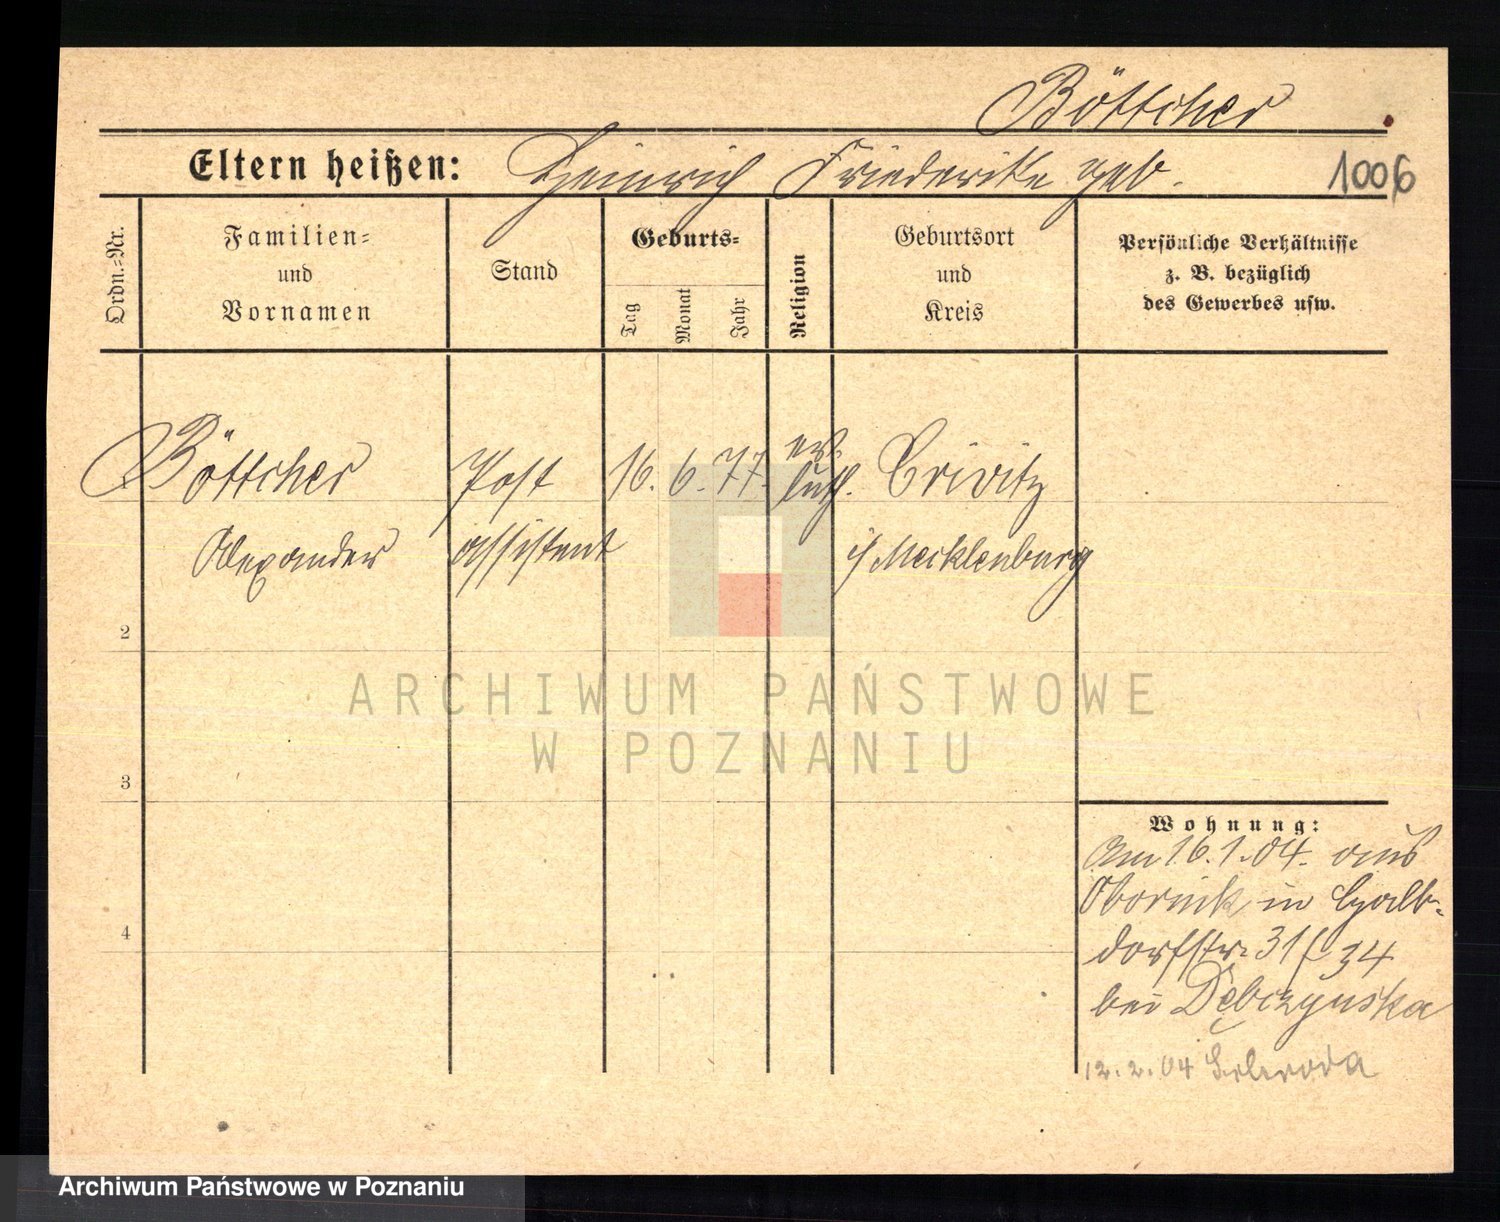 Böttcher
Eltern heißen: Heinrich Friederike geb.
1006
Ordn.-Nr.
Familien-
und
Vornamen
Stand
Geburts-
Tag
Monat
Jahr
Religion
Geburtsort
und
Kreis
Persönliche Verhältnisse
z. B. bezüglich
des Gewerbes usw.
Böttcher Post 16. 6. 77. ev. luth. Crivitz
Alexander assistent i/ Mecklenburg
2
3
4
Wohnung:
Am 16.1.04. aus
Obornik in
dorfstr. 31/34
bei Dębczyńska
12.2.04 Schroda
ARCHIWUM PAŃSTWOWE
W POZNANIU
Archiwum Państwowe w Poznaniu